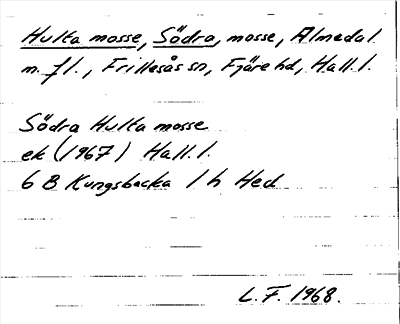 Hulta mosse, Södra, mosse, Almedal
m. fl., Frillesås sn, Fjäre hd, Hall. l.
Södra Hulta mosse
ek (1967) Hall. l.
6 B Kungsbacka 1 h Hed
L. F. 1968.